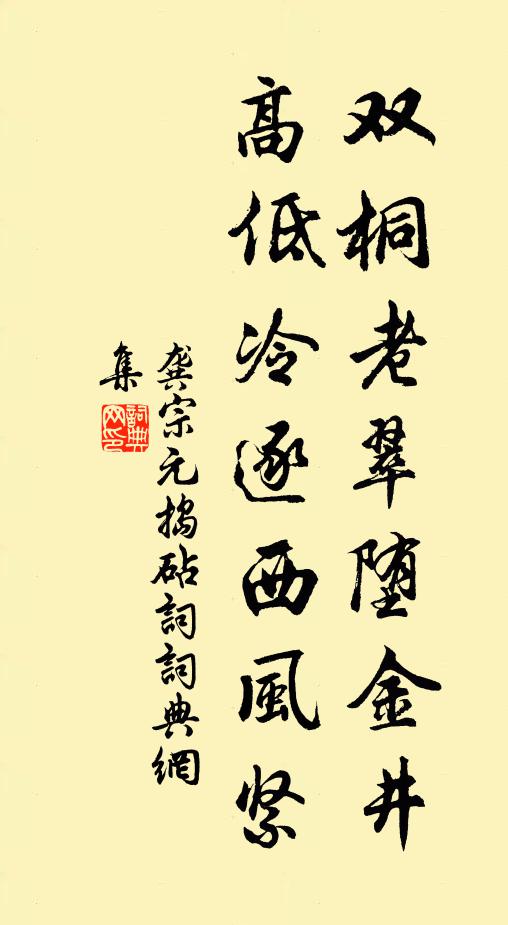 双桐老翠堕金井
高低冷逐西風紧
龚宗元捣砧詞詞典網
集
詞典
网印